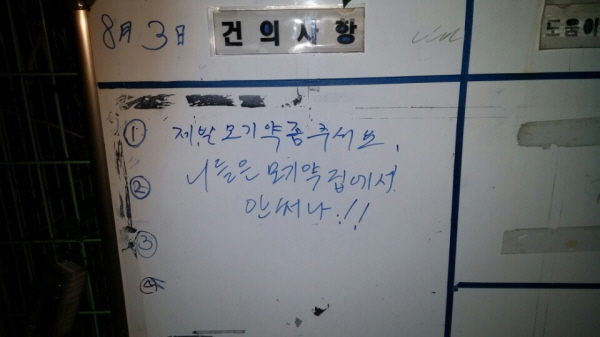 8月 3日 건의사항
도움이
① 제발 모기약좀 주서요.
② 니들은 모기약 집에서
안써나!!
③
④